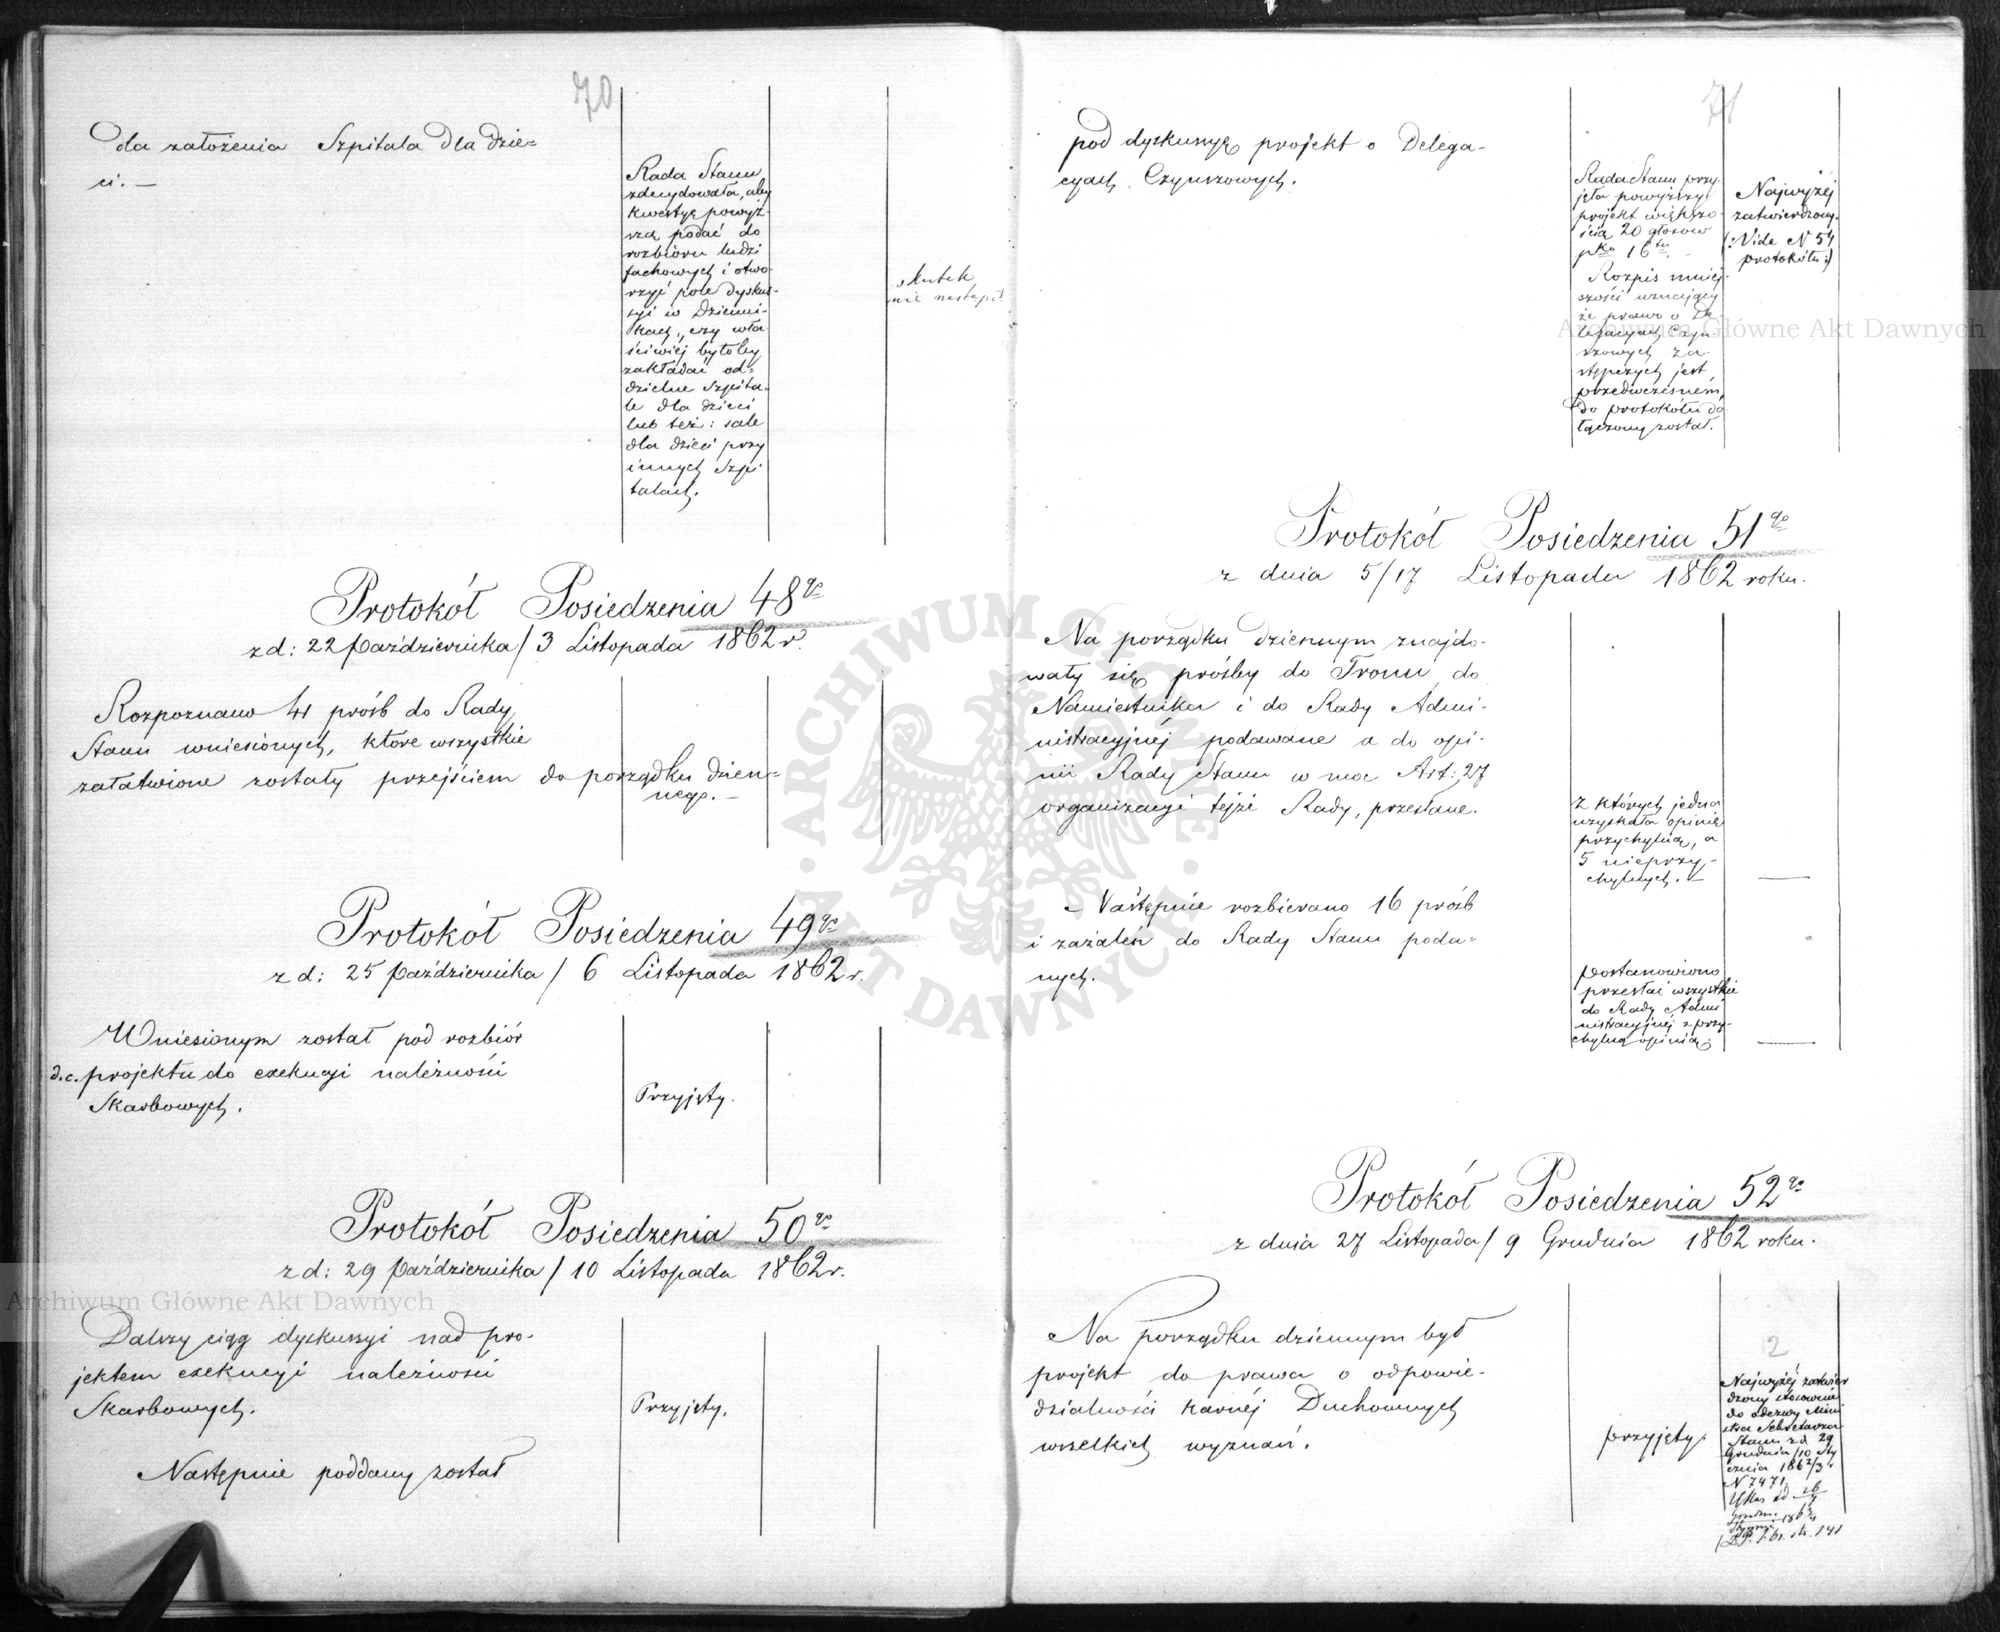 70
dla założenia Szpitala dla dzie=
ci. —
Rada Stanu
zdecydowała, aby
kwestyę powyż-
szą podać do
rozbioru ludzi
fachowych i otwo-
rzyć pole dysku-
syi w Dzienni-
kach, czy wła-
ściwiéj byłoby
zakładać od=
dzielne Szpita-
le dla dzieci
lub też: sale
dla dzieci przy
innych Szpi-
talach.
skutek
nie nastąpił
Protokół Posiedzenia 48go
z d: 22 Października / 3 Listopada 1862 r.
Rozpoznano 41 próśb do Rady
Stanu wniesionych, które wszystkie
załatwione zostały przejściem do porządku dzien=
nego. —
Protokół Posiedzenia 49go
z d: 25 Października / 6 Listopada 1862 r.
Wniesionym został pod rozbiór
d.c. projektu do exekucyi należności
Skarbowych.
Przyjęty.
Protokół Posiedzenia 50go
z d: 29 Października / 10 Listopada 1862 r.
Dalszy ciąg dyskussyi nad pro-
jektem exekucyi należności
Skarbowych.
Przyjęty.
Następnie poddany został
71
pod dyskussyę projekt o Delega-
cyach Czynszowych.
Rada Stanu przy-
jęła powyższy
projekt większo-
ścią 20 głosów
pko 16tu.
Rozpis mniej-
szości uznający
że prawo o De
legacyach Czyn
szowych za-
stępczych jest
przedwczesném,
do protokółu do
łączony został.
Najwyżéj
zatwierdzony.
(: Vide N 54
protokółu :)
Protokół Posiedzenia 51go
z dnia 5/17 Listopada 1862 roku.
Na porządku dziennym znajdo-
wały się prośby do Tronu, do
Namiestnika i do Rady Admi-
nistracyjnéj podawane a do opi-
nii Rady Stanu w moc Art: 27
organizacyi tejże Rady, przesłane.
z których jedna
uzyskała opinię
przychylną, a
5 nieprzy-
chylnych. —
Następnie rozbierano 16 próśb
i zażaleń do Rady Stanu poda=
nych.
Postanowiono
przesłać wszystkie
do Rady Admi
nistracyjnéj z przy-
chylną opinią.
Protokół Posiedzenia 52go
z dnia 27 Listopada / 9 Grudnia 1862 roku.
Na porządku dziennym był
projekt do prawa o odpowie-
dzialności karnéj Duchownych
wszelkich wyznań.
przyjęty.
12
Najwyżéj zatwier
dzony stosownie
do odezwy Mini
stra Sekretarza
Stanu z d. 29
Grudnia / 10 Sty
cznia 1862/3 r.
N 7471.
Ukaz z d. 26/7
Grudnia
Stycznia 1862/3
(D.P. t. 61. str. 141
ARCHIWUM GŁÓWNE AKT DAWNYCH
Archiwum Główne Akt Dawnych
Archiwum Główne Akt Dawnych